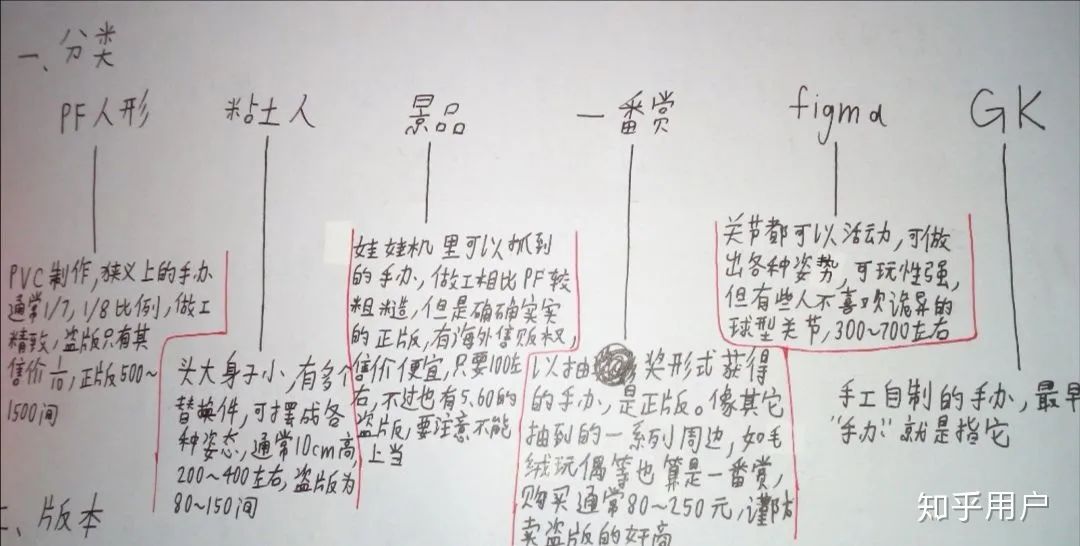 一、分类
PF人形
粘土人
景品
一番赏
figma
GK
PVC制作,狭义上的手办
通常1/7,1/8比例,做工
精致,盗版只有其
售价1/10,正版500~
1500间
头大身子小,有多个
替换件,可摆成各
种姿态,通常10cm高,
200~400左右,盗版为
80~150间
娃娃机里可以抓到
的手办,做工相比PF较
粗糙,但是确确实实
的正版,有海外售贩权,
售价便宜,只要100左
右,不过也有5.60的
盗版,要注意不能
上当
以抽奖形式获得
的手办,是正版。像其它
抽到的一系列周边,如毛
绒玩偶等也算是一番赏,
购买通常80~250元,谨防
卖盗版的奸商
关节都可以活动,可做
出各种姿势,可玩性强,
但有些人不喜欢诡异的
球型关节,300~700左右
手工自制的手办,最早
"手办"就是指它
二、版本
知乎用户